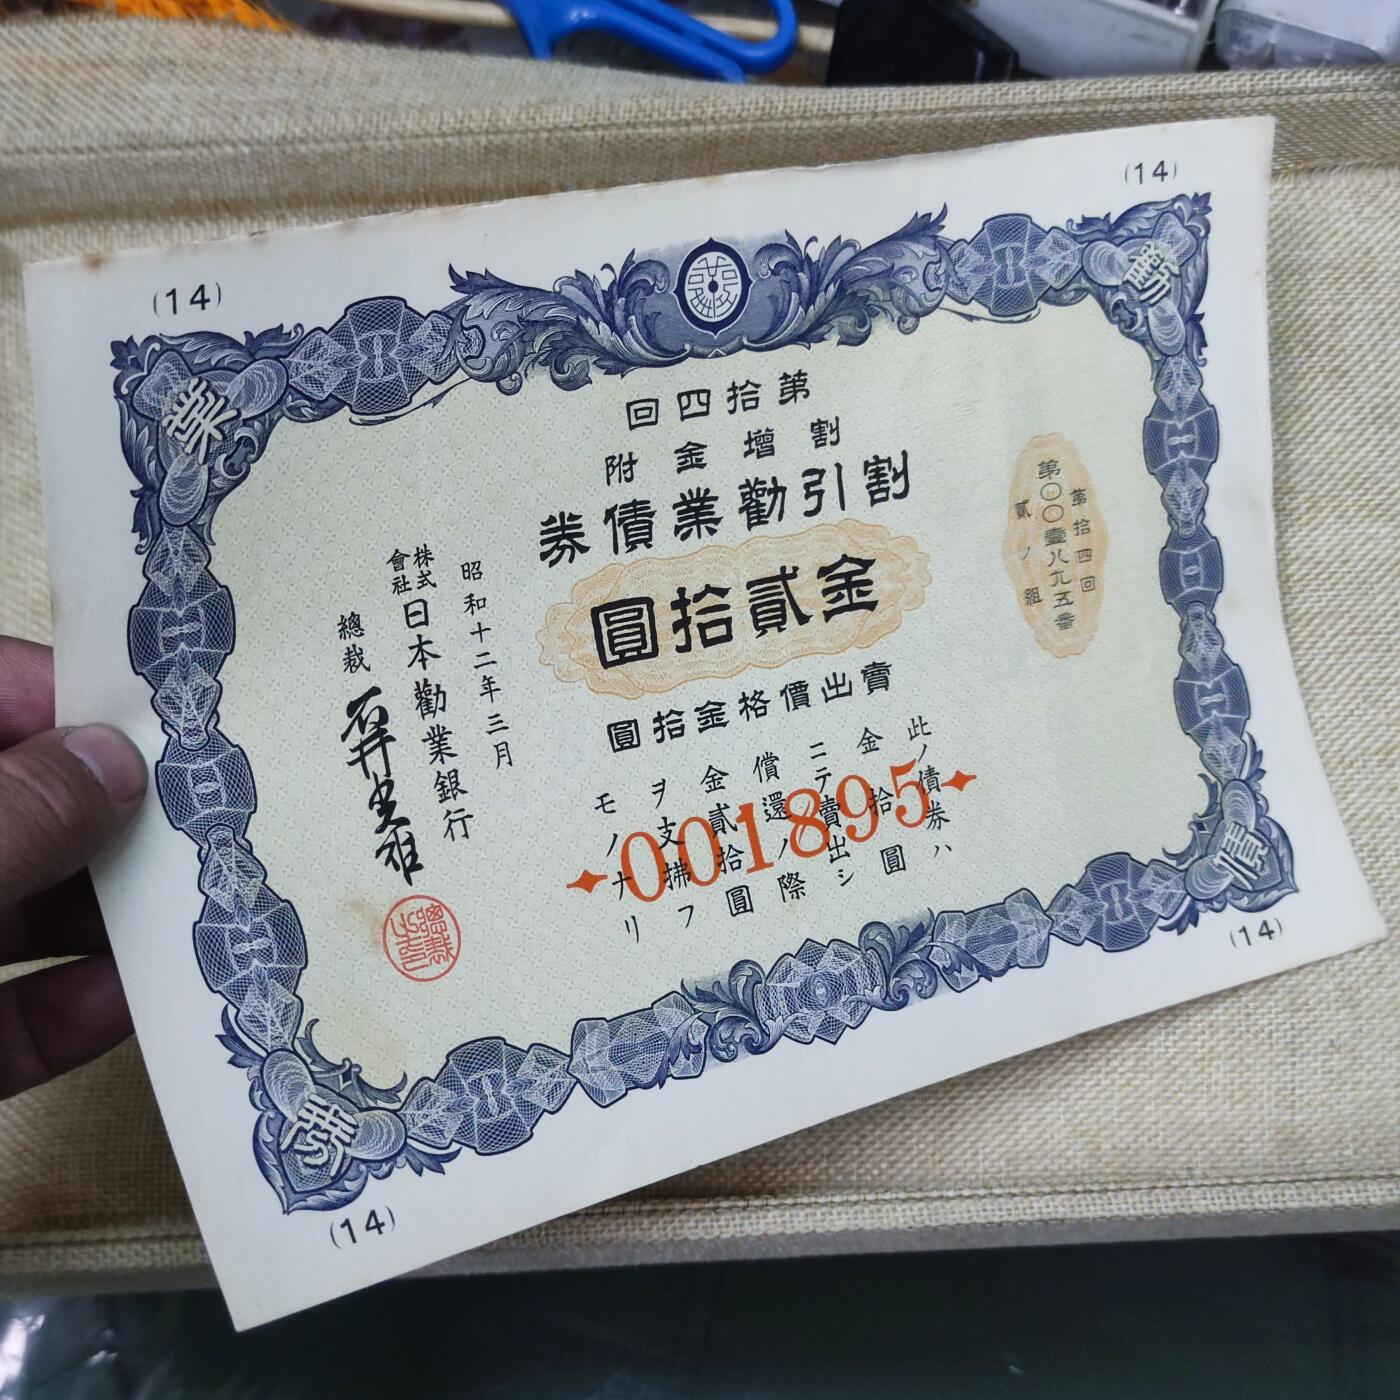 (14)
(14)
第拾四回
割增金附
割引勸業債券
金貳拾圓
賣出價格金拾圓
第拾四回
第〇〇壹八九五番
貳ノ組
此ノ債券ハ
金拾圓
ニテ賣出シ
償還ノ際
金貳拾圓
ヲ支拂フ
モノナリ
001895
昭和十二年三月
株式會社日本勸業銀行
總裁
勸
業
債
券
(14)
(14)